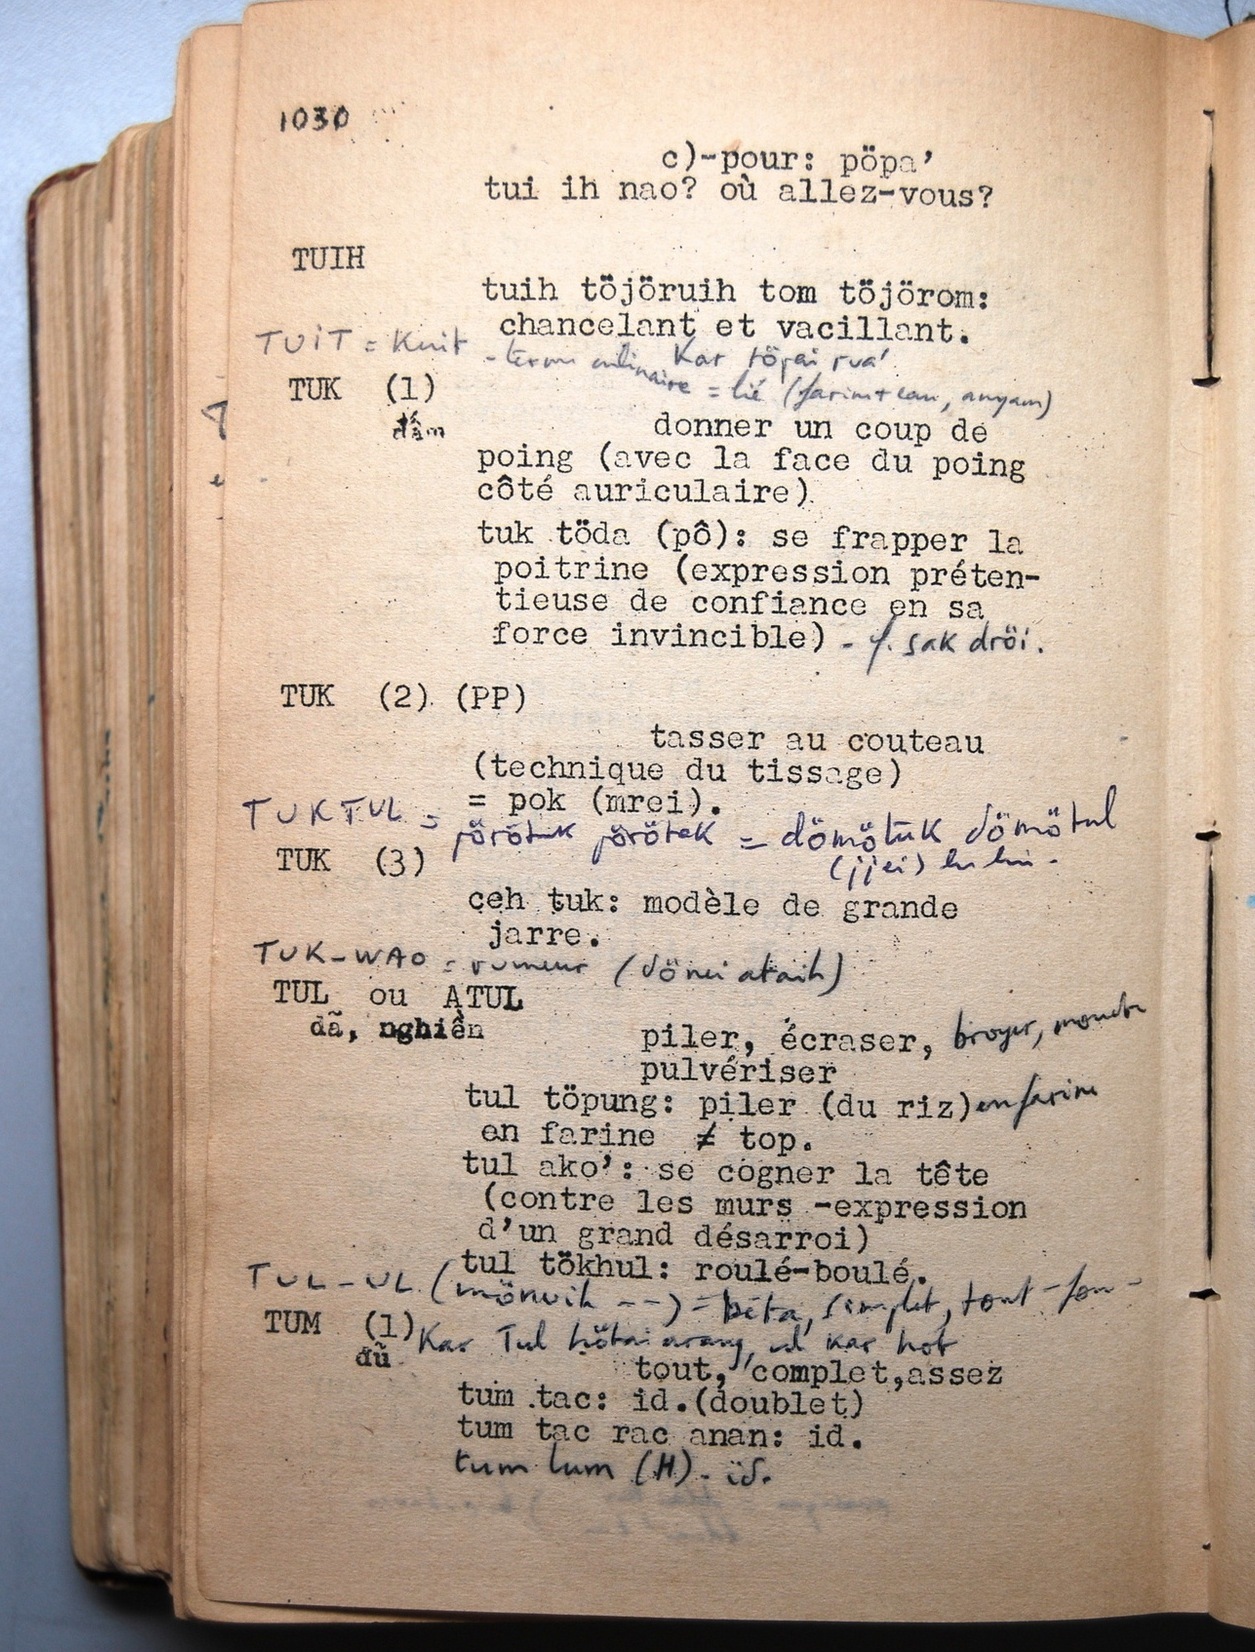 1030
c)-pour: pöpa'
tui ih nao? où allez-vous?
TUIH
tuih töjöruih tom töjörom:
chancelant et vacillant.
TUIT = Kuit - terme culinaire Kar töpai rua'
= lié (farine + eau, anyam)
TUK (1)
đấm
donner un coup de
poing (avec la face du poing
côté auriculaire)
tuk töda (pô): se frapper la
poitrine (expression préten-
tieuse de confiance en sa
force invincible) - cf. sak dröi.
TUK (2) (PP)
tasser au couteau
(technique du tissage)
= pok (mrei).
TUKTUL = pörötuk pörötek = dömötuk dömötul
(jjei)
TUK (3)
ceh tuk: modèle de grande
jarre.
TUK-WAO = rumeur (dönei ataih)
TUL ou ATUL
dã, nghiền
piler, écraser, broyer, moudre
pulvériser
tul töpung: piler (du riz) en farine
en farine ≠ top.
tul ako': se cogner la tête
(contre les murs -expression
d'un grand désarroi)
tul tökhul: roulé-boulé.
TUL-UL (mönuih --) = bêta, simplet, tout-fou-
TUM (1) Kar Tul hötai arang, ul kar hot
đũ
tout, complet,assez
tum tac: id.(doublet)
tum tac rac anan: id.
tum lum (H). id.